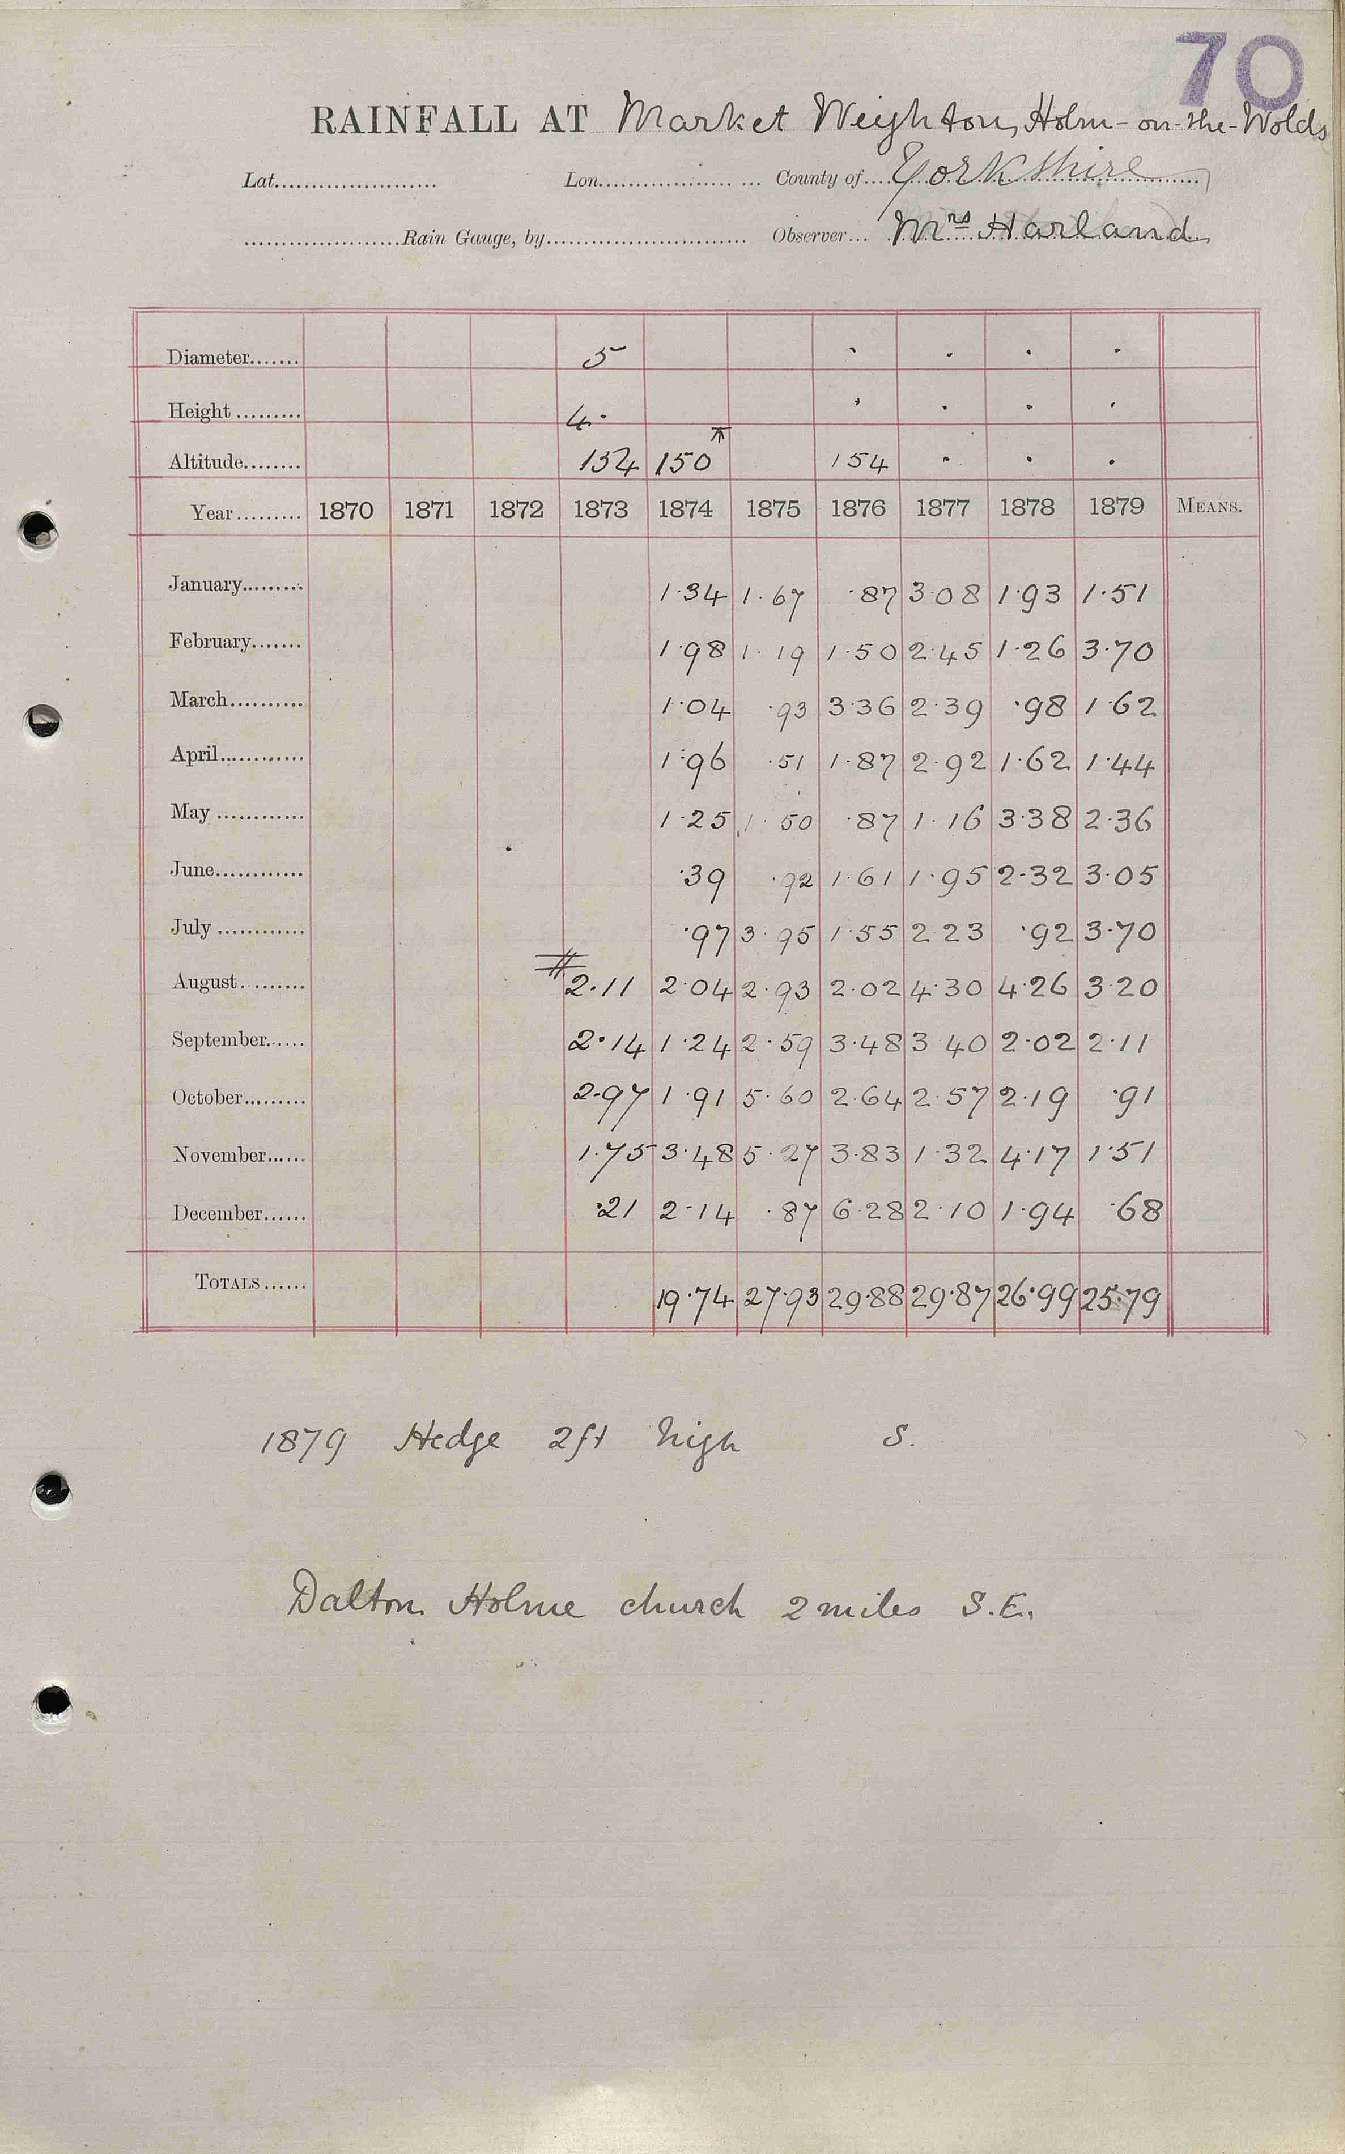 70
RAINFALL AT Market Weighton, Holm-on-the-Wolds
Lat....................... Lon....................... County of.... Yorkshire
......................Rain Gauge, by........................... Observer... Mrs Harland
Diameter....... 5 · · · ·
Height ......... 4· · · · ·
Altitude........ 134 150 154 · · ·
Year......... 1870 1871 1872 1873 1874 1875 1876 1877 1878 1879 MEANS.
January......... 1·34 1·67 ·87 3·08 1·93 1·51
February....... 1·98 1·19 1·50 2·45 1·26 3·70
March.......... 1·04 ·93 3·36 2·39 ·98 1·62
April............ 1·96 ·51 1·87 2·92 1·62 1·44
May ............ 1·25 1·50 ·87 1·16 3·38 2·36
June............ ·39 ·92 1·61 1·95 2·32 3·05
July ............ ·97 3·95 1·55 2·23 ·92 3·70
August......... 2·11 2·04 2·93 2·02 4·30 4·26 3·20
September...... 2·14 1·24 2·59 3·48 3·40 2·02 2·11
October......... 2·97 1·91 5·60 2·64 2·57 2·19 ·91
November...... 1·75 3·48 5·27 3·83 1·32 4·17 1·51
December...... ·21 2·14 ·87 6·28 2·10 1·94 ·68
TOTALS...... 19·74 27·93 29·88 29·87 26·99 25·79
1879 Hedge 2ft high S.
Dalton Holme church 2 miles S.E.